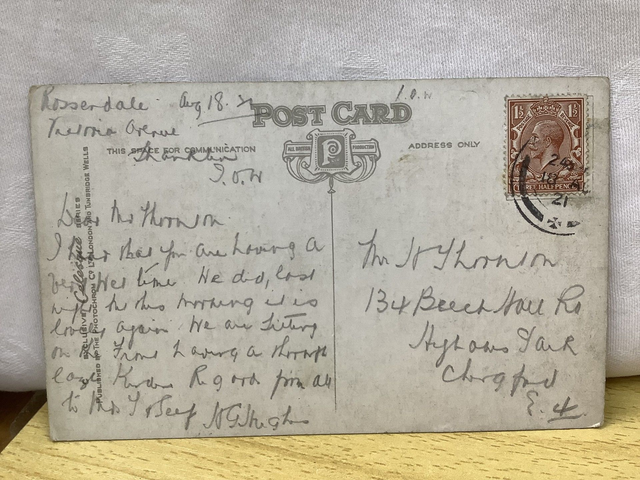 Rossendale Aug 18. 21
Victoria Avenue
Shanklin
I.O.W
I.O.W
POST CARD
THIS SPACE FOR COMMUNICATION
ALL BRITISH P PRODUCTION
ADDRESS ONLY
Dear Mr Thornton
I that you are having a
very wet time We did, last
night but this morning it is
lovely again We are sitting
on Front having a thorough
laze Kindest Regards from all
to Mrs T
134 Beech Hall Rd
Highams Park
Chingford
E. 4.
Mr Thornton
EXCLUSIVE Celesque SERIES
PUBLISHED BY THE PHOTOCHROM CO LTD LONDON AND TUNBRIDGE WELLS
1½ 1½
THREE HALF PENCE
21